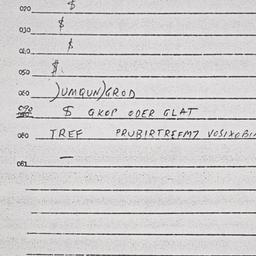 020 $
030 $
040 $
050 $
060 )UMQUN)GROD
070 $ GKOP ODER GLAT
080 TREF PRUBIRTREFM7 VOSIXOBIN
081 —